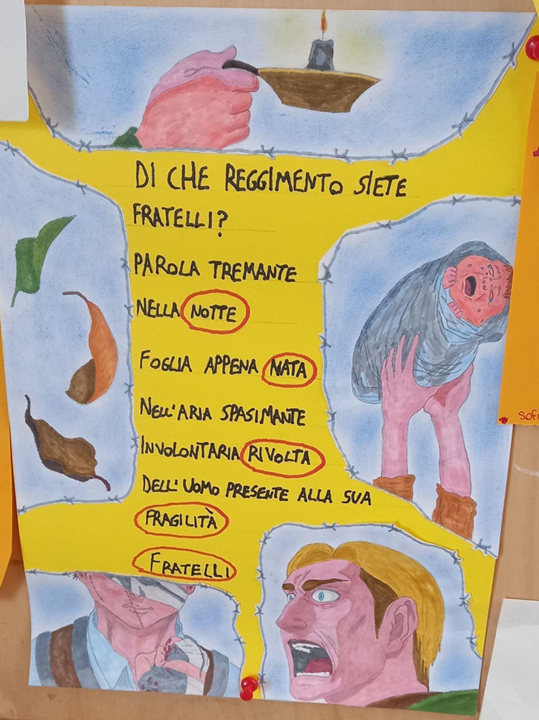 DI CHE REGGIMENTO SIETE
FRATELLI?
PAROLA TREMANTE
NELLA NOTTE
FOGLIA APPENA NATA
NELL'ARIA SPASIMANTE
INVOLONTARIA RIVOLTA
DELL'UOMO PRESENTE ALLA SUA
FRAGILITÀ
FRATELLI